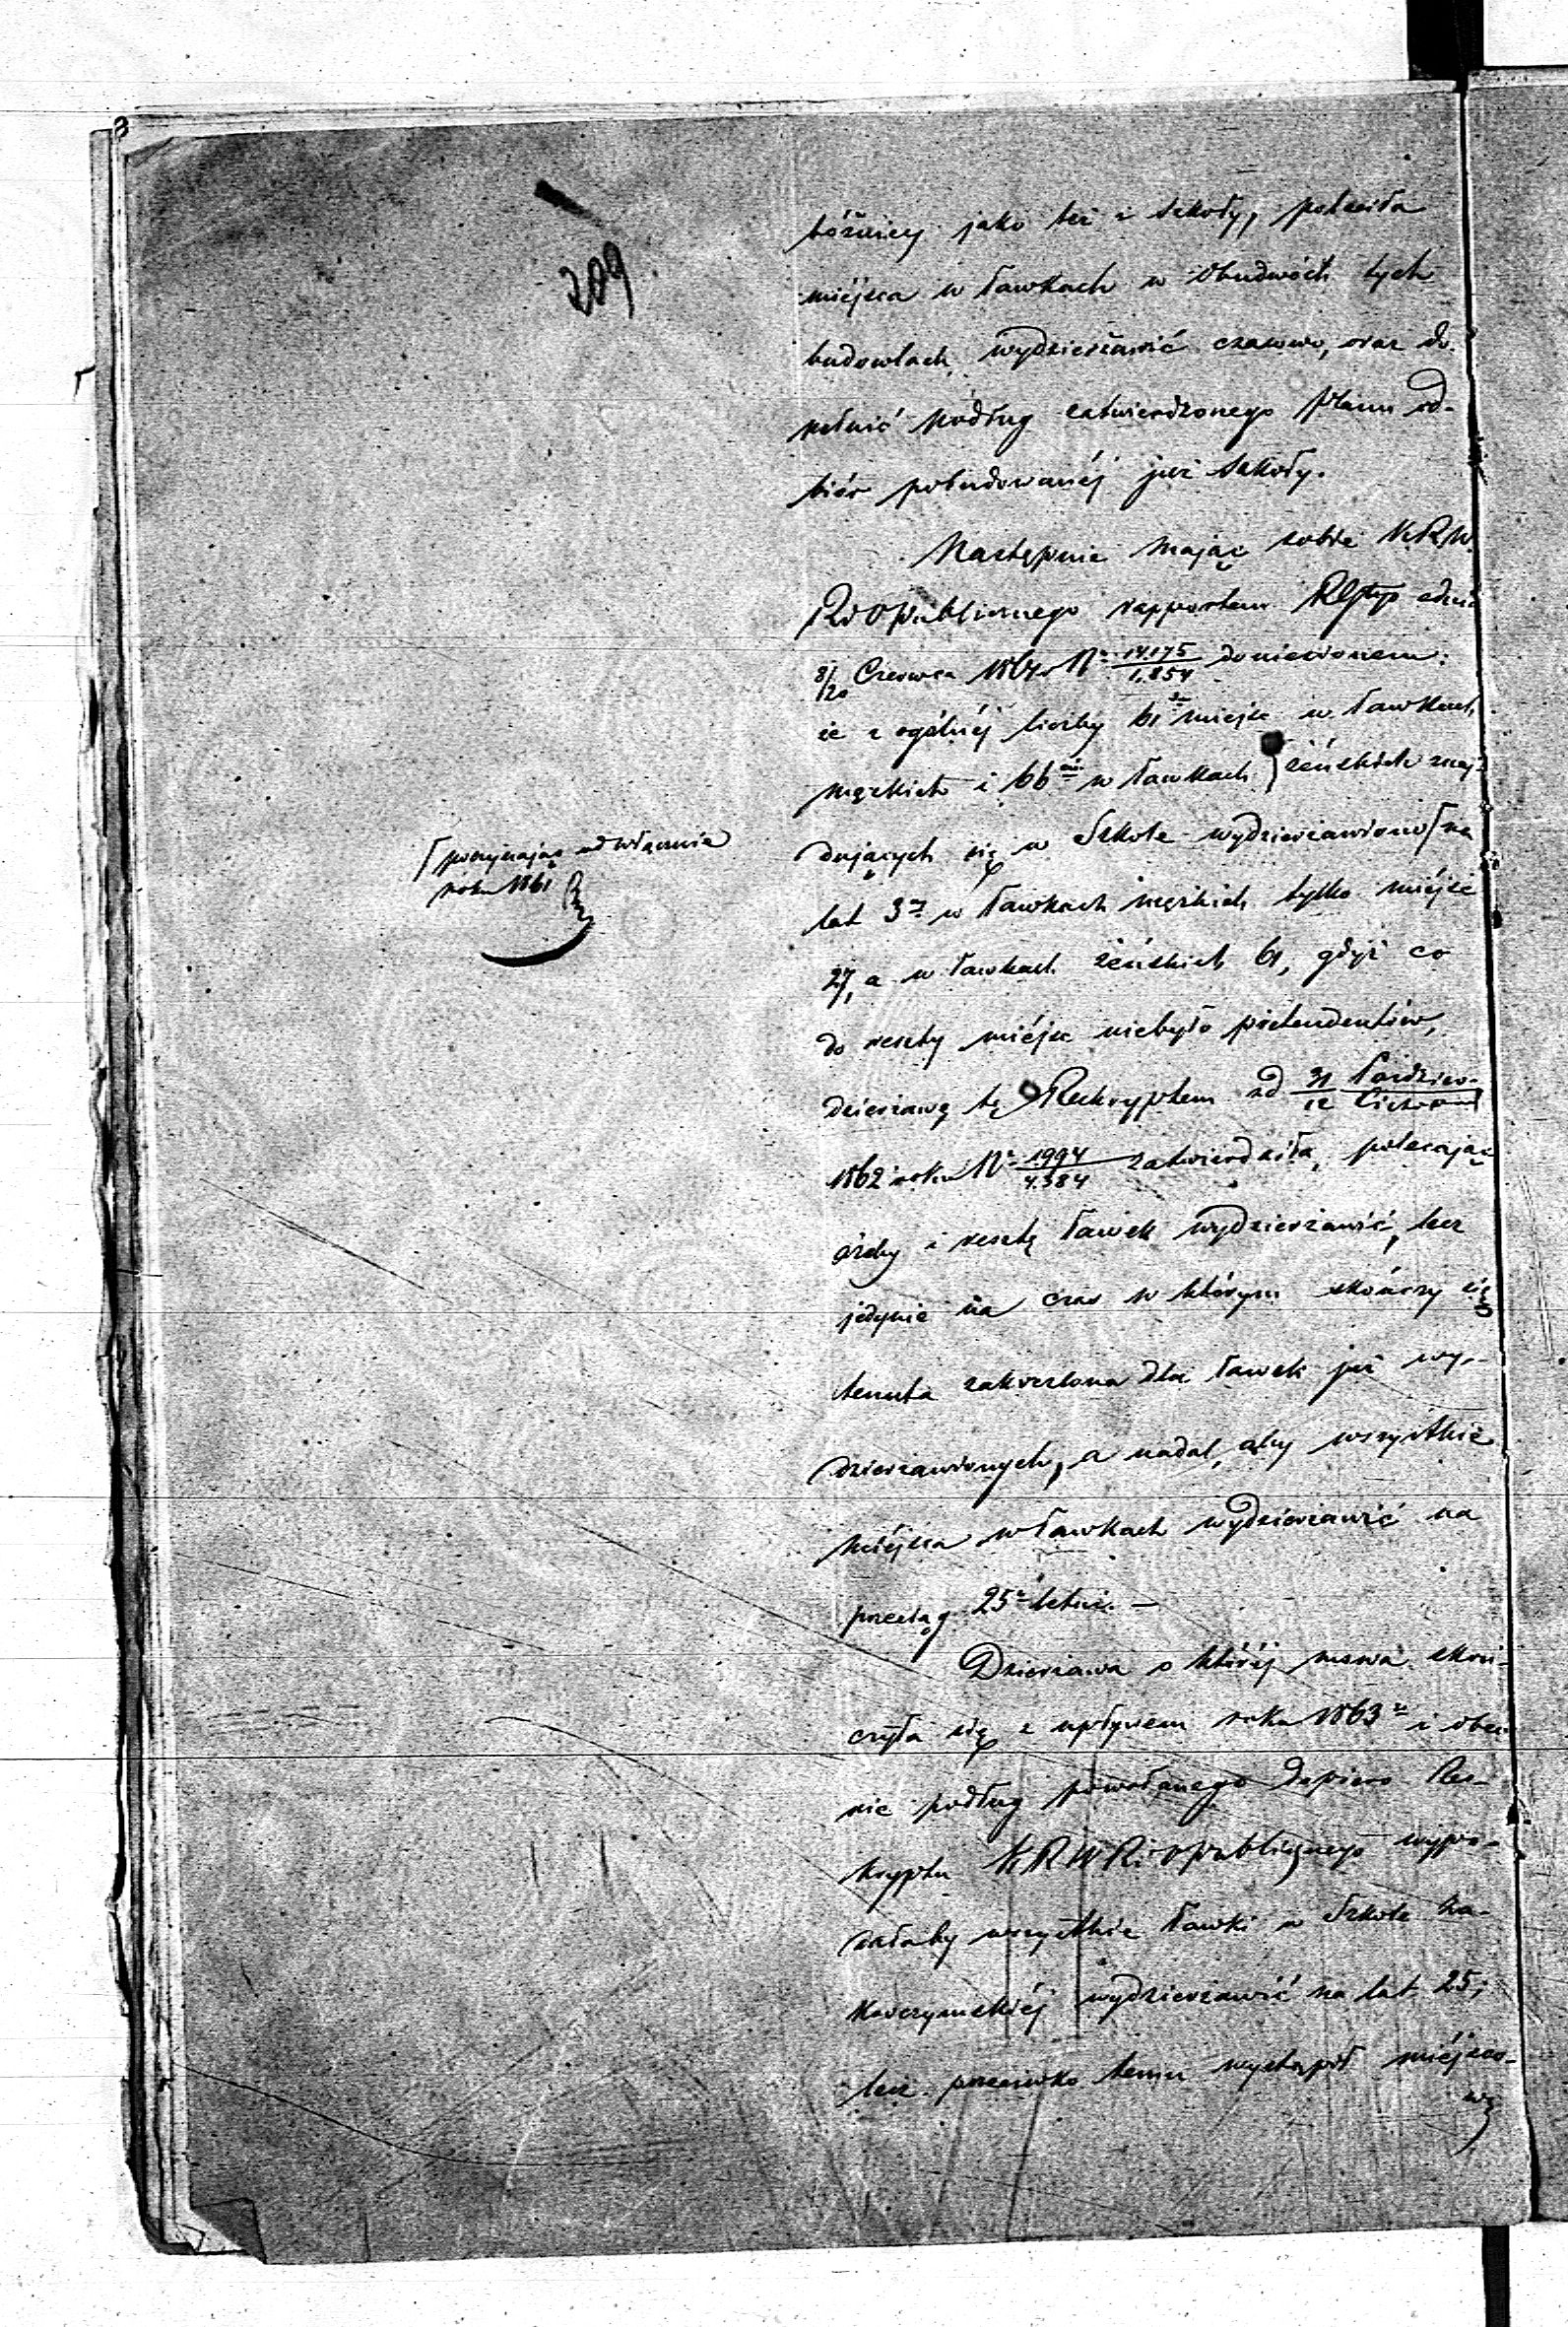 209
bóżnicy jako też i szkoły, poleciła
miéjsca w ławkach w obudwóch tych
budowlach, wydzierżawić czasowo, oraz do
pełnić podług zatwierdzonego planu od-
biór pobudowanéj już szkoły.
Następnie mając sobie K.R.W.
R i O Publicznego rapportem RGbgo z dnia
8/20 Czerwca 186 r. Nr 14.175/1.854 doniesionem:
że z ogólnéj liczby 61 miejsc w ławkach
męzkich i 66 w ławkach żeńskich znaj-
dujących się w Szkole wydzierżawiono na
począwszy od włącznie
roku 1861
lat 3y w ławkach męzkich tylko miéjsc
27, a w ławkach żeńskich 61, gdyż co
do reszty miéjsc niebyło pretendentów,
dzierżawę tę Reskryptem od 31 Paździer./12 Listopad
1862 roku Nr 1994/4.384 zatwierdziła, polecając
ażeby i resztę ławek wydzierżawić, lecz
jedynie na czas w którym skończy się
tenuta zakreślona dla ławek już wy-
dzierżawionych, a nadal, aby wszystkie
miéjsca w ławkach wydzierżawić na
przeciąg 25 letni. —
Dzierżawa o któréj mowa skoń-
czyła się z upływem roku 1863 i obec-
nie podług powołanego dopiero Res-
kryptu K R W R i O publicznego wypa-
dałaby wszystkie ławki w Szkole Za-
karczymskiéj wydzierżawić na lat 25;
lecz przeciwko temu wystąpił miéjsco-
wy